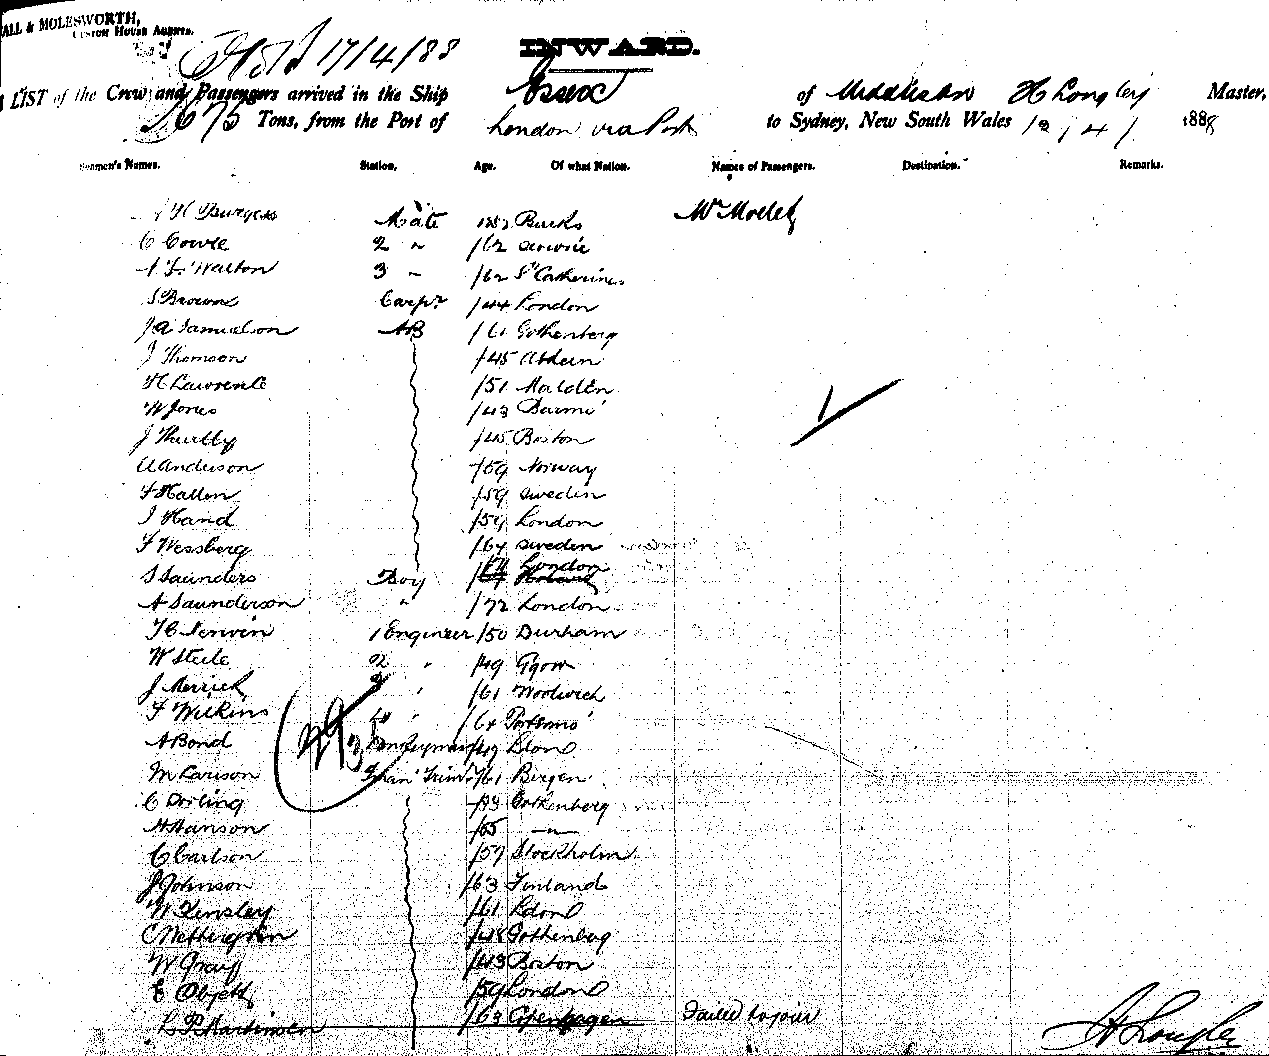 ALL & MOLESWORTH,
CUSTOM HOUSE AGENTS.
17/4/88
INWARD.
LIST of the Crew and Passengers arrived in the Ship Essex of H Longley Master,
1675 Tons, from the Port of London via Ports to Sydney, New South Wales 12/4/ 1888
Seamen's Names. Station. Age. Of what Nation. Names of Passengers. Destination. Remarks.
H Burgess Mate 1852 Bucks Mr
C Cowle 2 " /62
Walton 3 " /62 St Catherines
S Brown Carpr /44 London
J A Samuelson AB /61 Gothenberg
J Thomson /45
H Lawrence /51 Maldén
W Jones /43
J /45 Boston
A Anderson /59 Norway
F Hallen /59 Sweden
J Hand /59 London
F Wessberg /64 Sweden
S Saunders Boy London
A Saunderson " /72 London
1 Engineer /50 Durham
W Steele 2 " /49 Ggow
J Merrick 3 " /61 Woodwich
F Wilkins 4 " /64
A Bond Donkeyman Ldond
M Larison /61 Bergen
C Dorling Gothenberg
A Hanson /65 — " —
C Carlson /57 Stockholm
J Johnson /63 Finland
W Kensley /61 Ldond
C /48 Gothenbug
W Gray /43 Boston
E /59 London
L P Martinsen /63 Copenhagen Failed to join
29